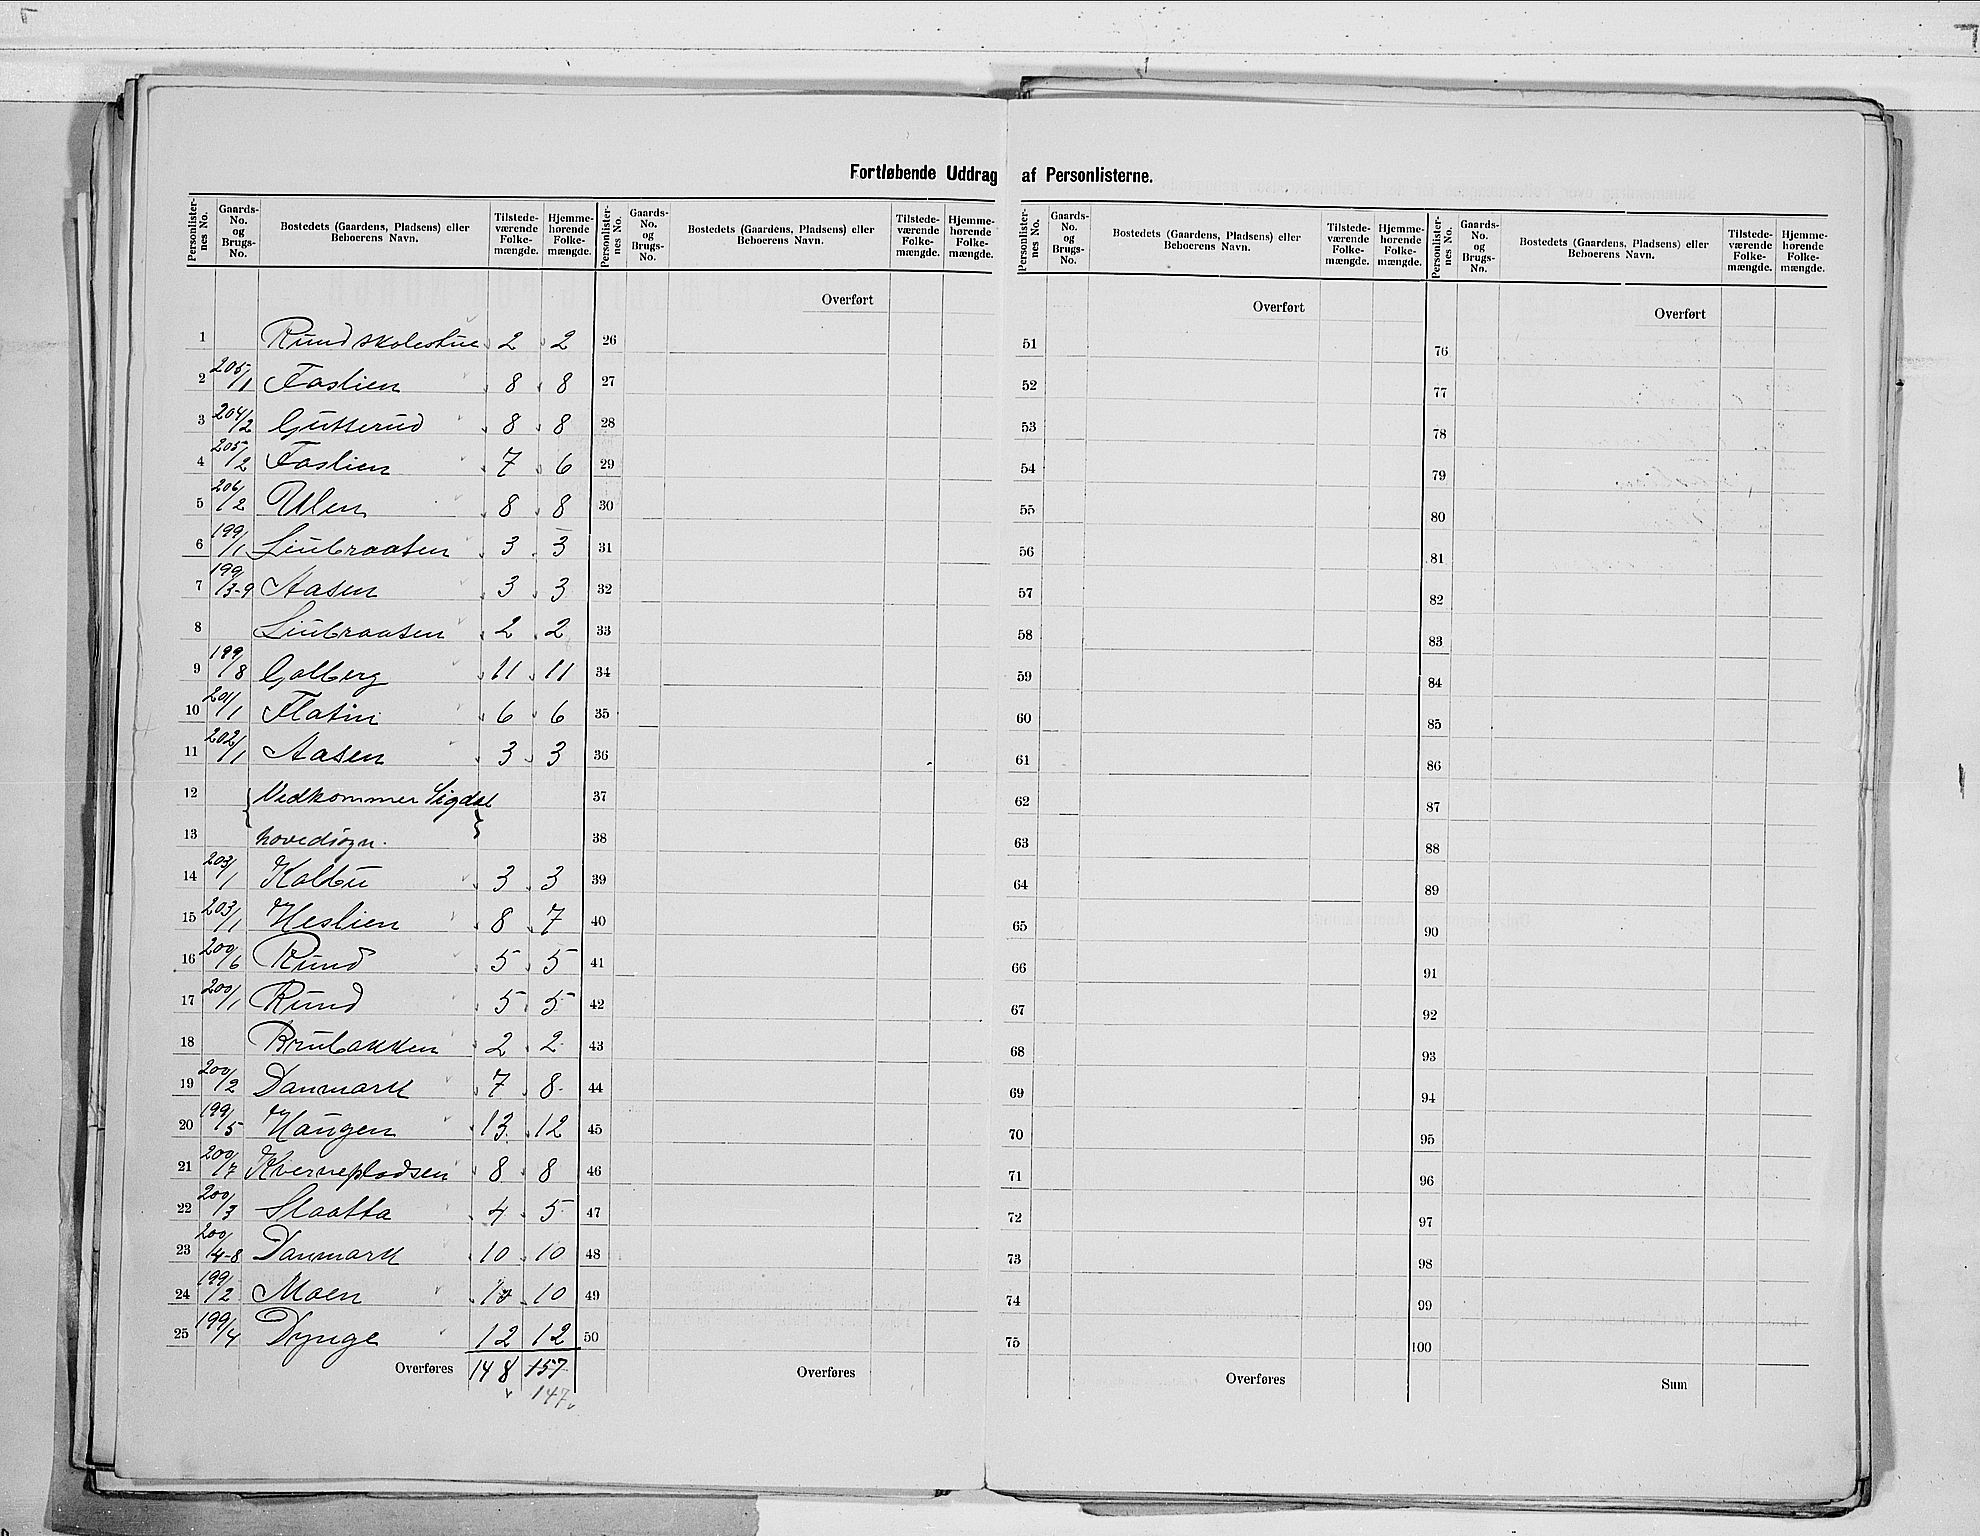 Fortløbende Uddrag af Personlisterne.
Personlister-nes No. Gaards-No. og Brugs-No. Bostedets (Gaardens, Pladsens) eller Beboerens Navn. Tilstede-værende Folke-mængde. Hjemme-hørende Folke-mængde. Personlister-nes No. Gaards-No. og Brugs-No. Bostedets (Gaardens, Pladsens) eller Beboerens Navn. Tilstede-værende Folke-mængde. Hjemme-hørende Folke-mængde. Personlister-nes No. Gaards-No. og Brugs-No. Bostedets (Gaardens, Pladsens) eller Beboerens Navn. Tilstede-værende Folke-mængde. Hjemme-hørende Folke-mængde. Personlister-nes No. Gaards-No. og Brugs-No. Bostedets (Gaardens, Pladsens) eller Beboerens Navn. Tilstede-værende Folke-mængde. Hjemme-hørende Folke-mængde.
Overført Overført Overført
1 Rundskolestue 2 2 26 51 76
2 205/1 Faslien 8 8 27 52 77
3 204/2 Gutterud 8 8 28 53 78
4 205/2 Faslien 7 6 29 54 79
5 206/2 Ulen 8 8 30 55 80
6 199/1 Liubraaten 3 3 31 56 81
7 199/3-9 Aasen 3 3 32 57 82
8 Liubraaten 2 2 33 58 83
9 199/8 Golberg 11 11 34 59 84
10 201/1 Flatin 6 6 35 60 85
11 202/1 Aasen 3 3 36 61 86
12 {Vedkommer Sigdal 37 62 87
13 hovedsogn.} 38 63 88
14 203/1 Kolbu 3 3 39 64 89
15 203/1 Heslien 8 7 40 65 90
16 200/6 Rund 5 5 41 66 91
17 200/1 Rund 5 5 42 67 92
18 Brubakken 2 2 43 68 93
19 200/2 Danmark 7 8 44 69 94
20 199/5 Haugen 13 12 45 70 95
21 200/7 Kvernepladsen 8 8 46 71 96
22 200/3 Slaatta 4 5 47 72 97
23 200/4-8 Danmark 10 10 48 73 98
24 199/2 Moen 10 10 49 74 99
25 199/4 Dynge 12 12 50 75 100
Overføres 148 157 Overføres Overføres Sum
147